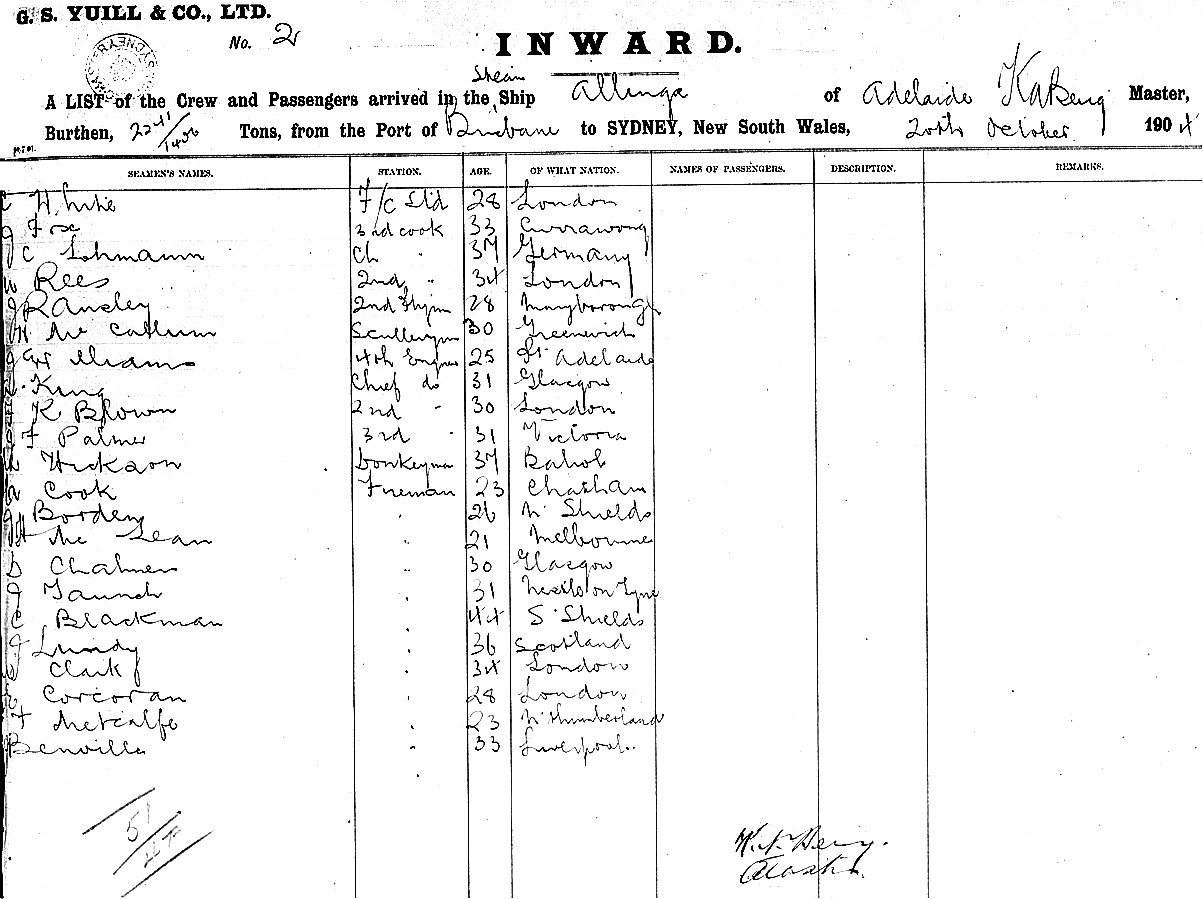 G. S. YUILL & CO., LTD.
No. 2
INWARD.
A LIST of the Crew and Passengers arrived in the Steam Ship Allinga of Adelaide Master,
Burthen, 2241/1406 Tons, from the Port of Brisbane to SYDNEY, New South Wales, 20th October 1904
SEAMEN'S NAMES. STATION. AGE. OF WHAT NATION. NAMES OF PASSENGERS. DESCRIPTION. REMARKS.
White F/C Std 28 London
J Fox 3rd cook 33 Currawong
J C Lohmann Ch " 37 Germany
W Rees 2nd " 34 London
J Ransley 2nd 28 Maryborough
Mc Callum Scullerym 30 Greenwich
J Williams 4th Engineer 25 Pt Adelaide
King Chief do 31 Glasgow
K Brown 2nd " 30 London
F Palmer 3rd " 31 Victoria
Hickson Donkeyman 37
Cook Fireman 23 Chatham
Borden " 26 N Shields
Mc Lean " 21 Melbourne
D Chalmers " 30 Glasgow
J " 31 on Tyne
C Blackman " 44 S Shields
J Lundy " 36 Scotland
Clark " 34 London
Corcoran " 28 London
F Metcalfe " 23 N'thumberland
Benville " 33 Liverpool
51/47